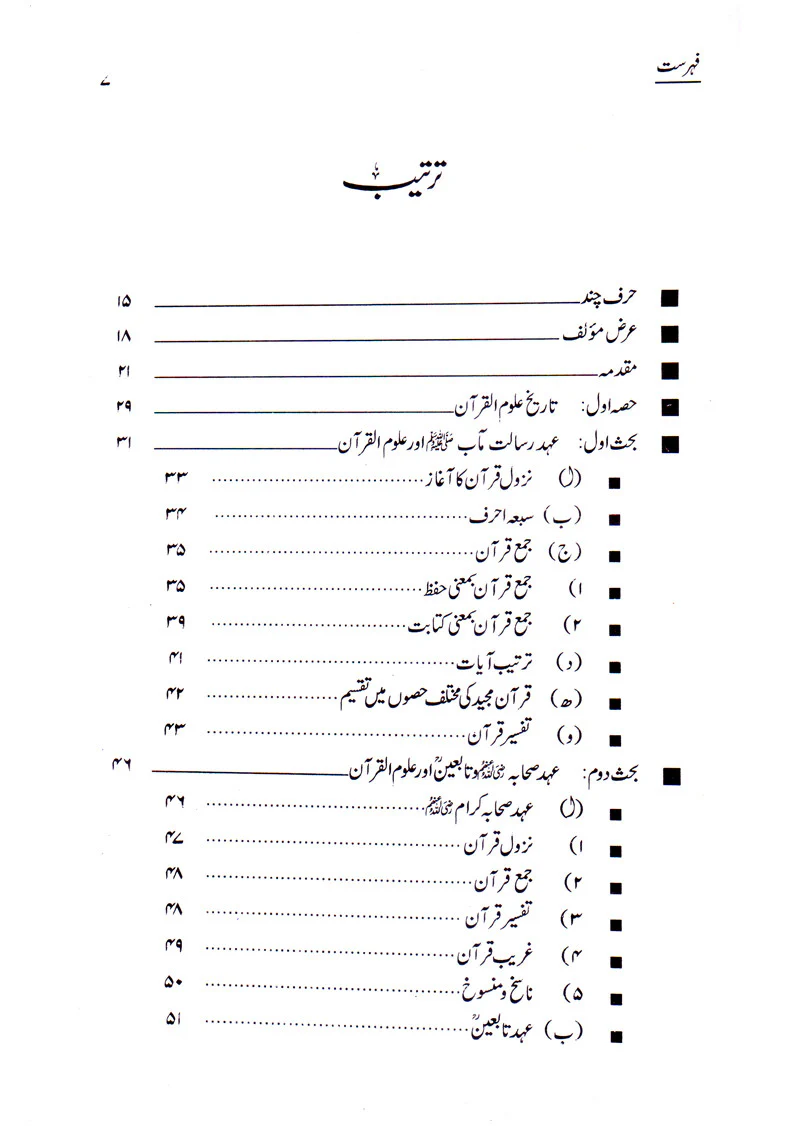 فہرست ۷
ترتیب
■ حرف چند ۱۵
■ عرض مؤلف ۱۸
■ مقدمہ ۲۱
■ حصہ اول: تاریخ علوم القرآن ۲۹
■ بحث اول: عہد رسالت مآب ﷺ اور علوم القرآن ۳۱
■ (ل) نزول قرآن کا آغاز ۳۳
■ (ب) سبعہ احرف ۳۴
■ (ج) جمع قرآن ۳۵
■ ۱) جمع قرآن بمعنی حفظ ۳۵
■ ۲) جمع قرآن بمعنی کتابت ۳۹
■ (د) ترتیب آیات ۴۱
■ (ھ) قرآن مجید کی مختلف حصوں میں تقسیم ۴۲
■ (و) تفسیر قرآن ۴۳
■ بحث دوم: عہد صحابہ رضی اللہ عنہم و تابعینؒ اور علوم القرآن ۴۶
■ (ل) عہد صحابہ کرام رضی اللہ عنہم ۴۶
■ ۱) نزول قرآن ۴۷
■ ۲) جمع قرآن ۴۸
■ ۳) تفسیر قرآن ۴۸
■ ۴) غریب قرآن ۴۹
■ ۵) ناسخ و منسوخ ۵۰
■ (ب) عہد تابعینؒ ۵۱